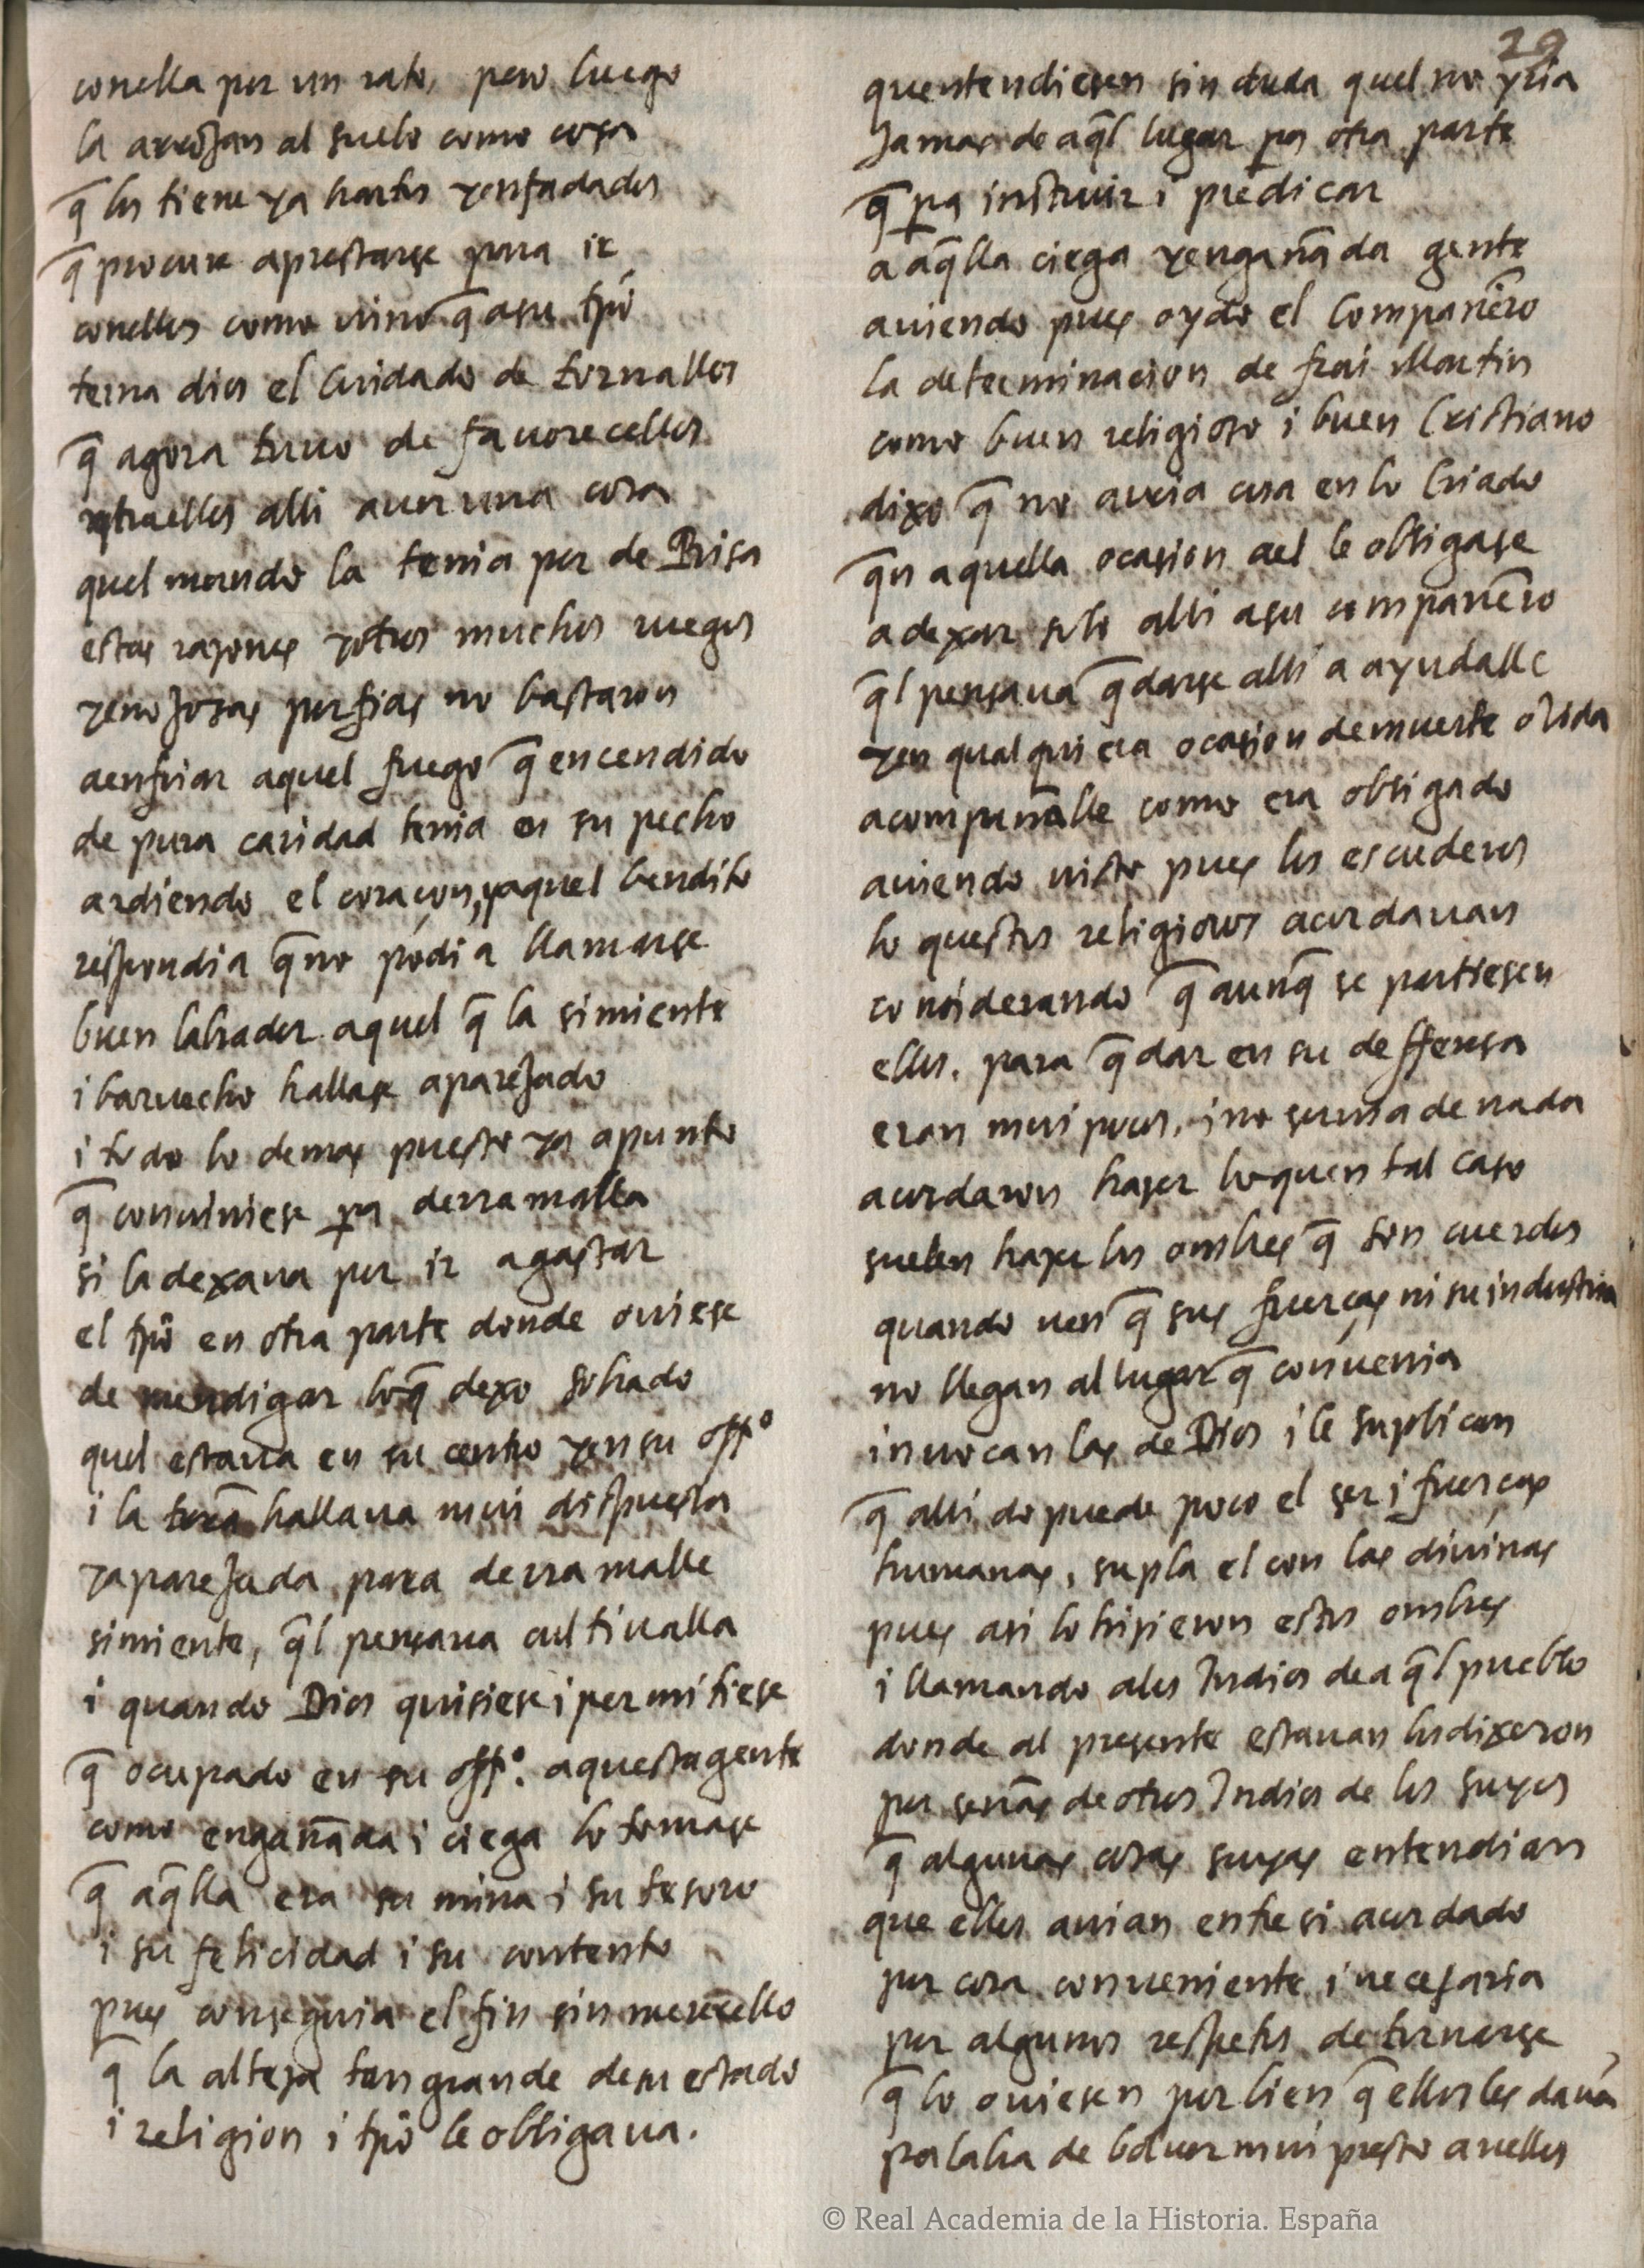 conella por un rato, pero luego
la arroJan al suelo como cosa
q̃ los tiene ya hartos yenfadados
q̃ procure aprestarse para ir
conellos como vino q̃ asu tpõ
terna dios el Cuidado de tornallos
q̃ agora tuuo de fauorecellos
alli auer una cosa
quel mundo la tenia por de Risa
estas razones yotros muchos ruegos
yenoJosas porfias no bastaron
aenfriar aquel fuego q̃ encendido
de pura caridad tenia en su pecho
ardiendo el coraçon, yaquel bendito
respondia q̃ no podia llamarse
buen labrador aquel q̃ la simiente
i baruecho hallase apareJado
i todo lo demas puesto ya apunto
q̃ conuiniese pa derramalla
si la dexaua por ir agastar
el tpõ en otra parte donde ouiese
de mendigar loq̃ dexo sobrado
quel estaua en su centro yensu offº
i la hallaua mui dispuesta
yapareJada para derramalle
simiente, q̃l pensaua cultiualla
i quando Dios quisiese i permitiese
q̃ ocupado en su offº. aquesta gente
como engañada i ciega lo tomase
q̃ aq̃lla era su mina i su tesoro
i su felicidad i su contento
pues conseguia el fin sin merecello
q̃ la alteza tan grande desu estado
i religion i tpõ le obligaua.
29
quentendiesen sin duda quel no yria
Jamas de aq̃l lugar pa otra parte
q̃ pa instruir i predicar
a aq̃lla ciega yengañada gente
auiendo pues oydo el Compañero
la determinacion de frai Martin
como buen religioso i buen Cristiano
dixo q̃ no auria cosa en lo Criado
q̃n aquella ocasion ael le obligase
a dexar solo alli asu compañero
q̃l pensaua q̃darse alli a ayudalle
yen qualquiera ocasion de muerte o vida
acompañalle como era obligado
auiendo visto pues los escuderos
lo questos religiosos acordauan
considerando q̃ aunq̃ se partiesen
ellos. para q̃dar en su deffensa
eran mui pocos, i no seruia de nada
acordaron hazer loquen tal caso
suelen hazer los ombres q̃ son cuerdos
quando uen q̃ sus fuerças ni su industria
no llegan al lugar q̃ conuenia
inuocan las de Dios i le suplican
q̃ alli do puede poco el ser i fuerças
humanas, supla el con las diuinas
pues asi lo hizieron estos ombres
i llamando alos Indios de aq̃l pueblo
donde al presente estauan los dixeron
por señas de otros Indios de los suyos
q̃ algunas cosas suyas entendian
que ellos auian entre si acordado
por cosa conueniente i necesaria
por algunos respetos de tornarse
q̃ lo ouiesen por bien q̃ ellos les dauan
palabra de boluer mui presto a uellos
© Real Academia de la Historia. España